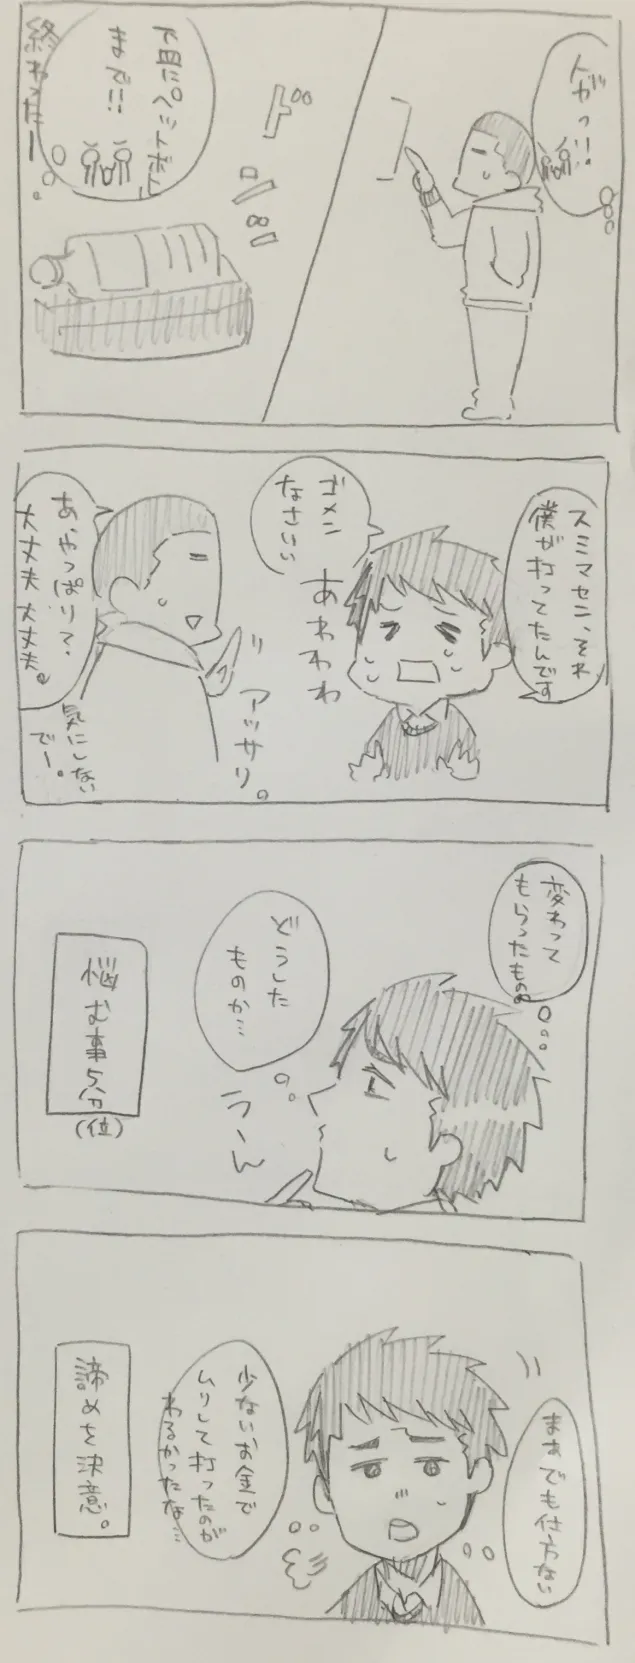 人がっ!!
下皿にペットボトル
まで!!
終わったー。
ド
スミマセン、それ
僕が打ってたんです
ゴメン
なさいい
あわわわ
あ、やっぱりて、
大丈夫大丈夫。
気にしない
でー。
アッサリ。
変わって
もらったものの
どうした
ものか…
うーん
悩む事5分
(位)
まぁでも仕方ない
少ないお金で
ムリして打ったのが
わるかったな…
諦めを決意。